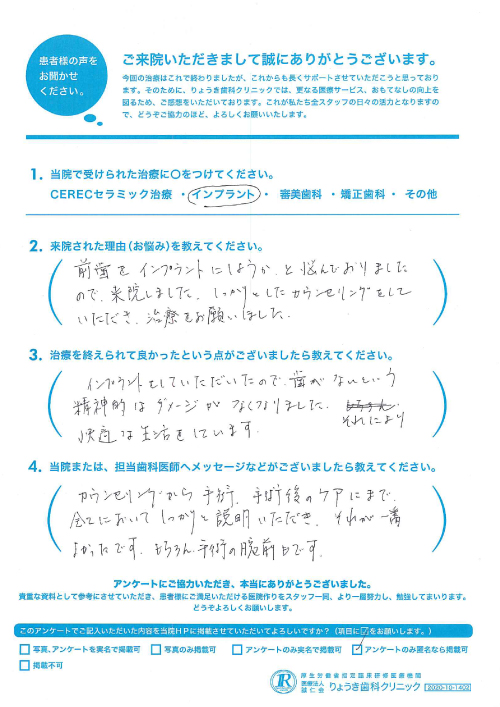 患者様の声を
お聞かせ
ください。
ご来院いただきまして誠にありがとうございます。
今回の治療はこれで終わりましたが、これからも長くサポートさせていただこうと思っており
ます。そのために、りょうき歯科クリニックでは、更なる医療サービス、おもてなしの向上を
図るため、ご感想をいただいております。これが私たち全スタッフの日々の活力となりますの
で、どうぞご協力のほど、よろしくお願いいたします。
1. 当院で受けられた治療に○をつけてください。
CERECセラミック治療 ・ インプラント ・ 審美歯科 ・ 矯正歯科 ・ その他
2. 来院された理由(お悩み)を教えてください。
前歯をインプラントにしようか、と悩んでおりました
ので、来院しました。しっかりとしたカウンセリングをして
いただき、治療をお願いしました。
3. 治療を終えられて良かったという点がございましたら教えてください。
インプラントをしていただいたので、歯がないという
精神的なダメージがなくなりました。それにより
快適な生活をしています。
4. 当院または、担当歯科医師へメッセージなどがございましたら教えてください。
カウンセリングから手術、手術後のケアにまで、
全てにおいてしっかりと説明いただき、それが一番
よかったです。もちろん手術の腕前もです。
アンケートにご協力いただき、本当にありがとうございました。
貴重な資料として参考にさせていただき、患者様にご満足いただける医院作りをスタッフ一同、より一層努力し、勉強してまいります。
どうぞよろしくお願いします。
このアンケートでご記入いただいた内容を当院HPに掲載させていただいてよろしいですか?(項目に☑をお願いします。)
□ 写真、アンケートを実名で掲載可 □ 写真のみ掲載可 □ アンケートのみ実名で掲載可 ☑ アンケートのみ匿名なら掲載可
□ 掲載不可
厚生労働省指定臨床研修医療機関
医療法人
誠仁会 りょうき歯科クリニック 2020-10-1402